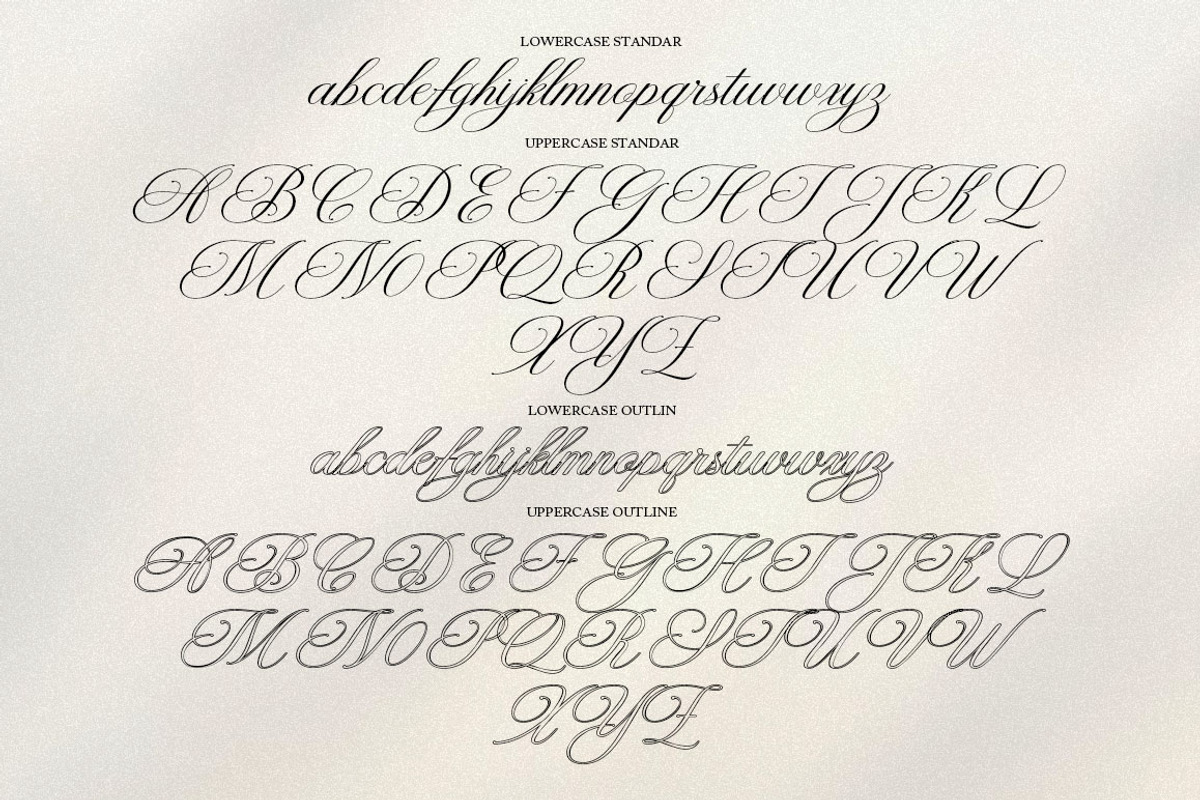 LOWERCASE STANDAR
abcdefghijklmnopqrstuvwxyz
UPPERCASE STANDAR
ABCDEFGHIJKL
MNOPQRSTUVW
XYZ
LOWERCASE OUTLIN
abcdefghijklmnopqrstuvwxyz
UPPERCASE OUTLINE
ABCDEFGHIJKL
MNOPQRSTUVW
XYZ